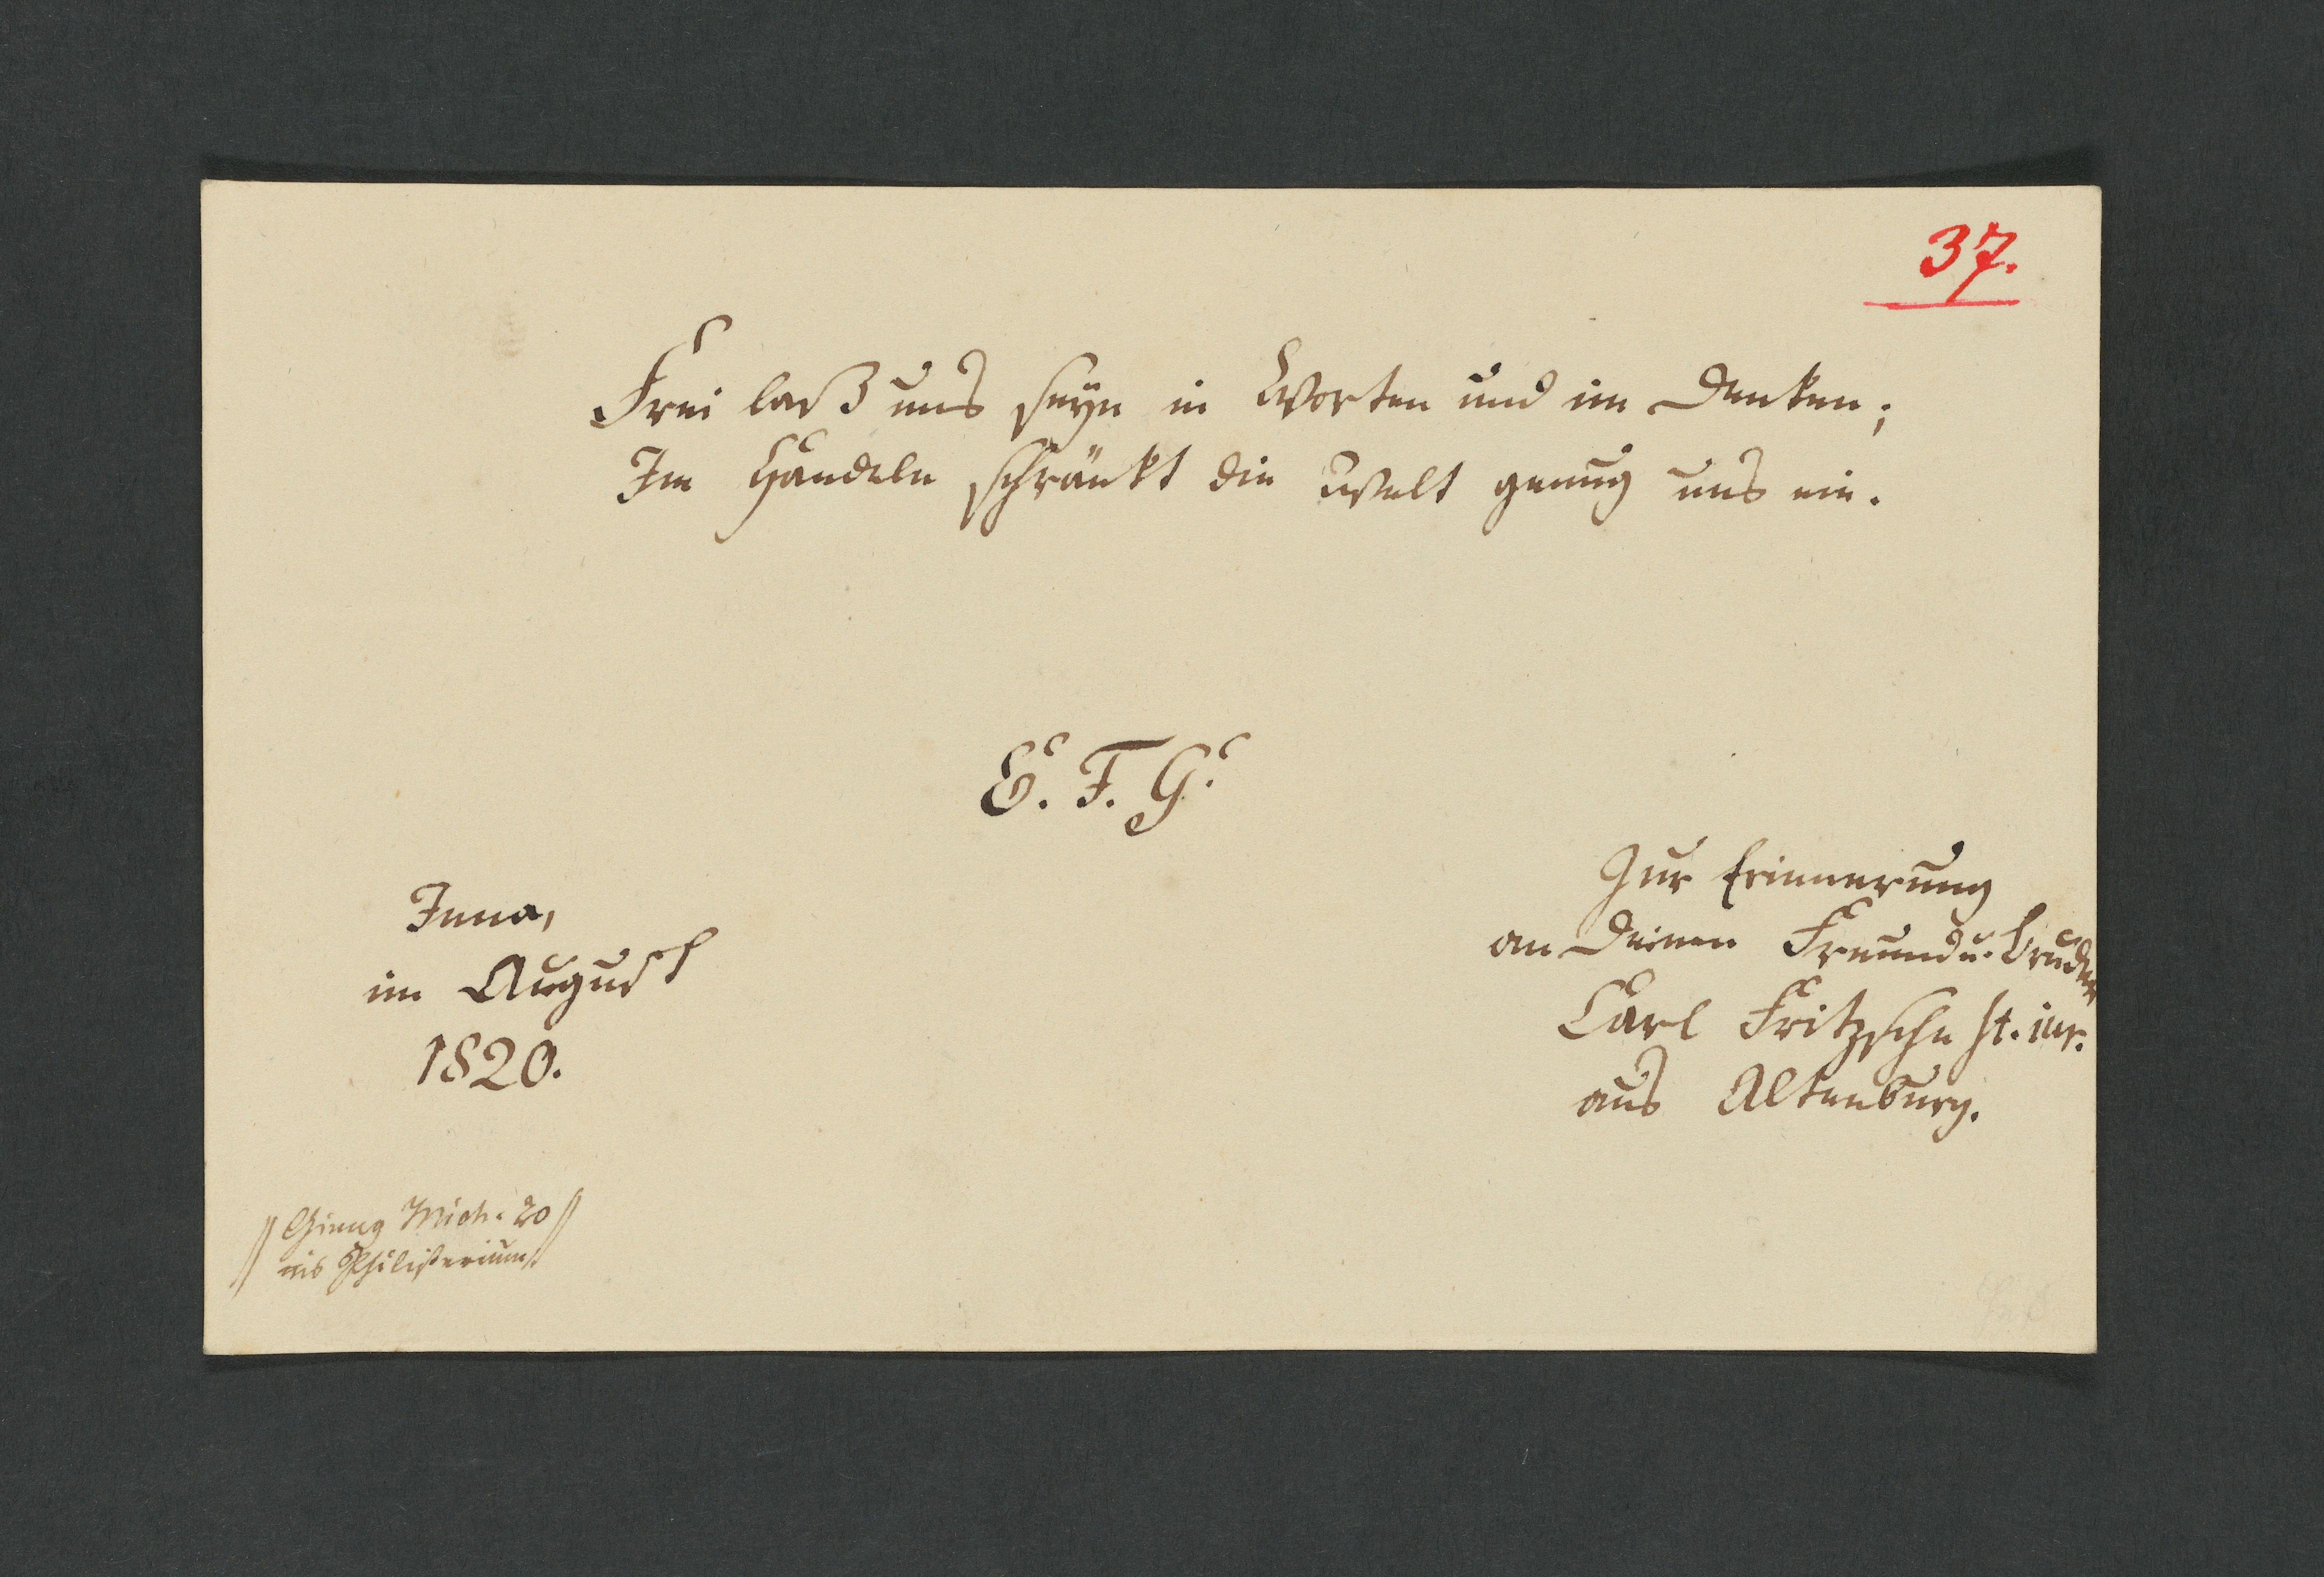 37.
Frei laß uns seyn in Worten und im Denken;
Im Handeln schränkt die Welt genug uns ein.
E. F. G.
Jena,
im August
1820.
Zur Erinnerung
an Deinen Freund u. Bruder
Carl Fritzsche st. iur.
aus Altenburg.
// Ging Mich. 20 //
// ins Philisterium //